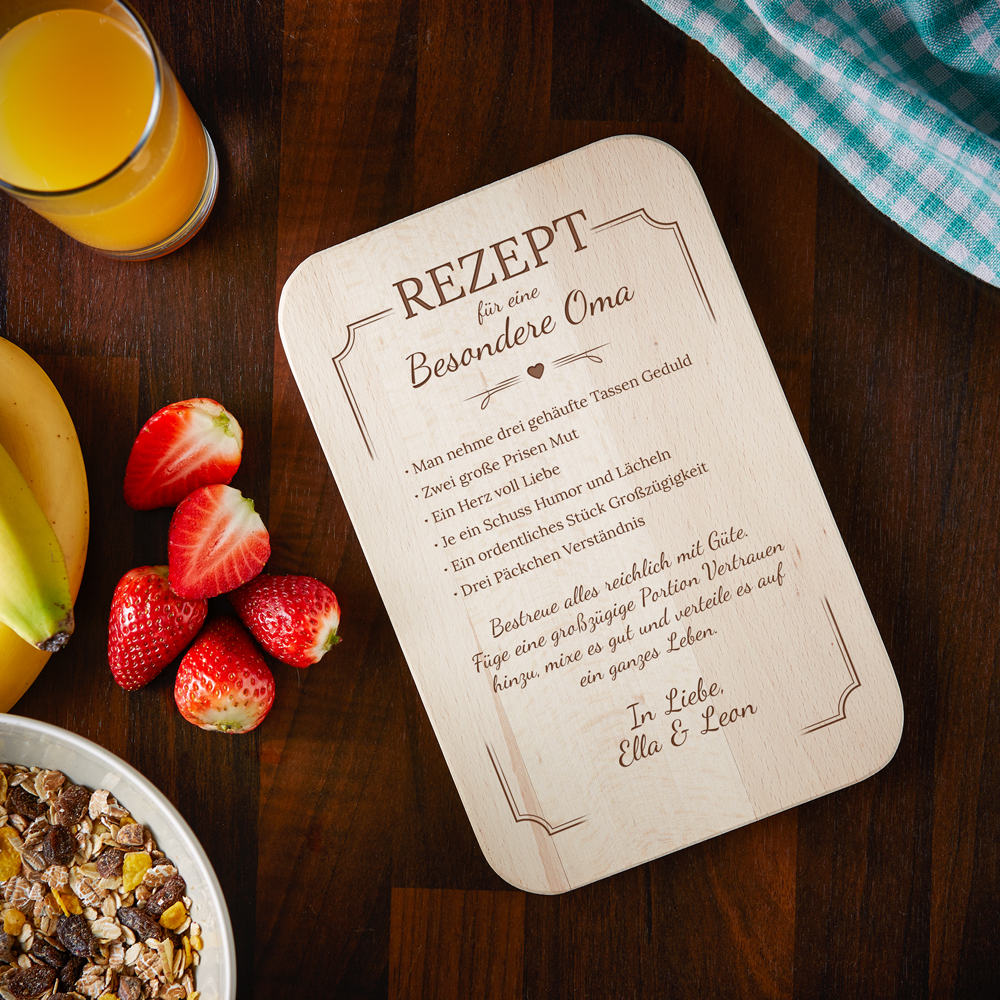 REZEPT
für eine
Besondere Oma
· Man nehme drei gehäufte Tassen Geduld
· Zwei große Prisen Mut
· Ein Herz voll Liebe
· Je ein Schuss Humor und Lächeln
· Ein ordentliches Stück Großzügigkeit
· Drei Päckchen Verständnis
Bestreue alles reichlich mit Güte.
Füge eine großzügige Portion Vertrauen
hinzu, mixe es gut und verteile es auf
ein ganzes Leben.
In Liebe,
Ella & Leon